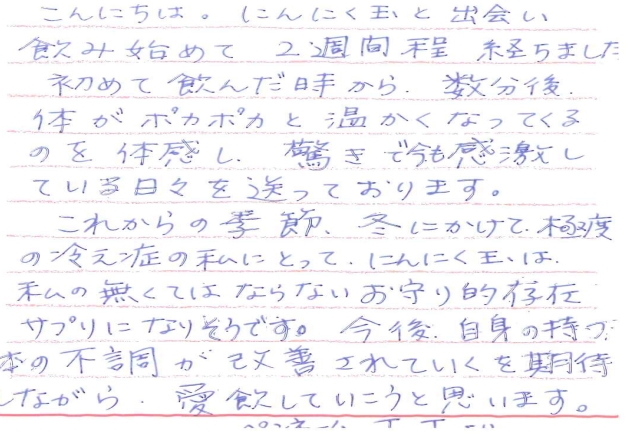 こんにちは。にんにく玉と出会い
飲み始めて 2週間程 経ちました
初めて飲んだ時から、数分後、
体がポカポカと温かくなってくる
のを体感し、驚きで今も感激し
ている日々を送っております。
これからの季節、冬にかけて、極度
の冷え症の私にとって、にんにく玉は、
私の無くてはならないお守り的存在
サプリになりそうです。今後、自身の持つ
体の不調が改善されていくを期待
しながら、愛飲していこうと思います。